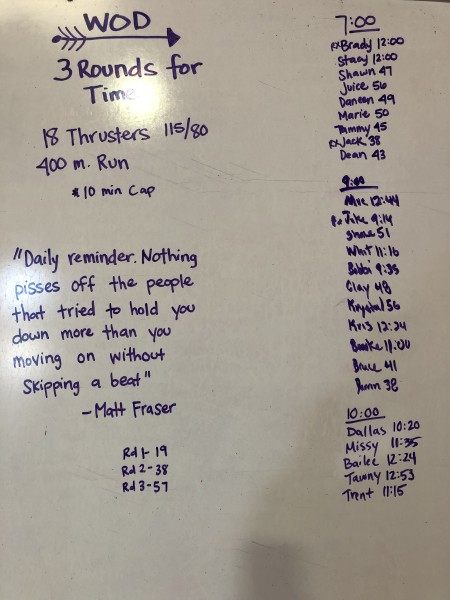 WOD
3 Rounds for
Time
18 Thrusters 115/80
400 m. Run
* 10 min Cap
"Daily reminder. Nothing
pisses off the people
that tried to hold you
down more than you
moving on without
Skipping a beat"
- Matt Fraser
Rd 1 - 19
Rd 2 - 38
Rd 3 - 57
7:00
Rx Brady 12:00
Stacy 12:00
Shawn 47
Juice 56
Daneen 49
Marie 50
Tammy 45
Rx Jack 38
Dean 43
9:00
12:44
Rx Jake 9:14
Shane 51
Whit 11:16
Bobbi 9:35
Clay 48
Krystal 56
Kris 12:24
Brooke
Bruce 41
38
10:00
Dallas 10:20
Missy 11:35
Bailee 12:24
Tawny 12:53
Trent 11:15